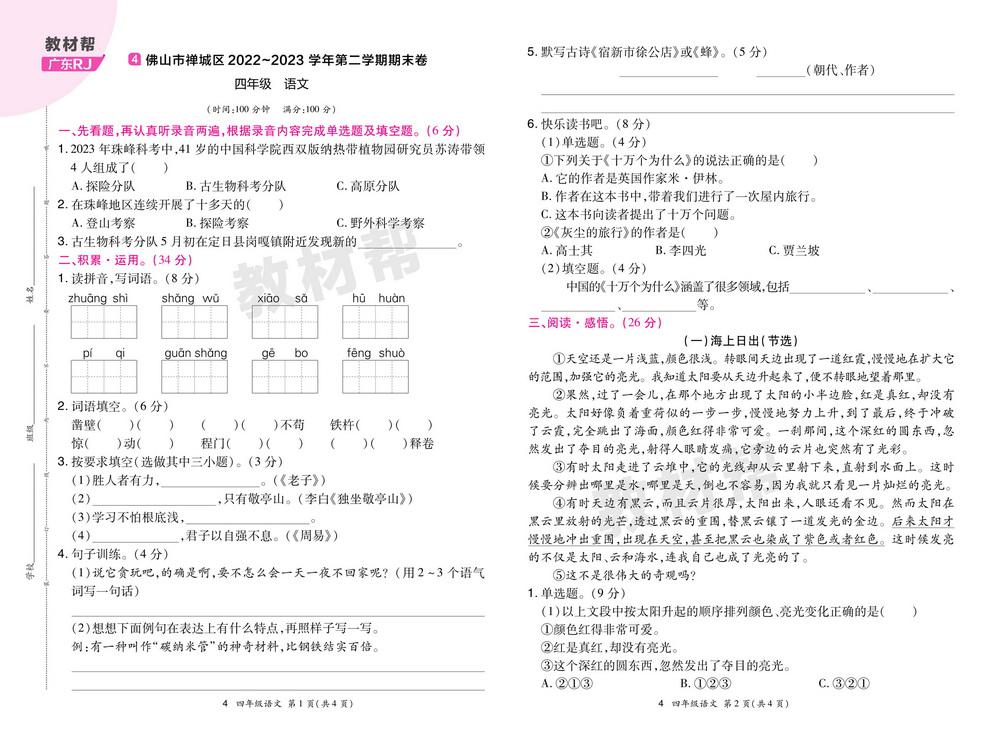 教材帮
广东RJ
4 佛山市禅城区 2022~2023 学年第二学期期末卷
四年级 语文
(时间:100 分钟 满分:100 分)
一、先看题,再认真听录音两遍,根据录音内容完成单选题及填空题。(6 分)
1. 2023 年珠峰科考中,41 岁的中国科学院西双版纳热带植物园研究员苏涛带领
4 人组成了( )
A. 探险分队 B. 古生物科考分队 C. 高原分队
2. 在珠峰地区连续开展了十多天的( )
A. 登山考察 B. 探险考察 C. 野外科学考察
3. 古生物科考分队 5 月初在定日县岗嘎镇附近发现新的________。
二、积累·运用。(34 分)
1. 读拼音,写词语。(8 分)
zhuāng shì shǎng wǔ xiāo sǎ hū huàn
pí qi guān shǎng gē bo fēng shuò
2. 词语填空。(6 分)
凿壁( )( ) ( )( )不苟 铁杵( )( )
惊( )动( ) 程门( )( ) ( )( )释卷
3. 按要求填空(选做其中三小题)。(3 分)
(1)胜人者有力,________。(《老子》)
(2)________,只有敬亭山。(李白《独坐敬亭山》)
(3)学习不怕根底浅,________。
(4)________,君子以自强不息。(《周易》)
4. 句子训练。(4 分)
(1)说它贪玩吧,的确是啊,要不怎么会一天一夜不回家呢?(用 2~3 个语气
词写一句话)
(2)想想下面例句在表达上有什么特点,再照样子写一写。
例:有一种叫作“碳纳米管”的神奇材料,比钢铁结实百倍。
4 四年级语文 第 1 页(共 4 页)
学校
班级
姓名
5. 默写古诗《宿新市徐公店》或《蜂》。(5 分)
________ ________(朝代、作者)
6. 快乐读书吧。(8 分)
(1)单选题。(4 分)
①下列关于《十万个为什么》的说法正确的是( )
A. 它的作者是英国作家米·伊林。
B. 作者在这本书中,带着我们进行了一次屋内旅行。
C. 这本书向读者提出了十万个问题。
②《灰尘的旅行》的作者是( )
A. 高士其 B. 李四光 C. 贾兰坡
(2)填空题。(4 分)
中国的《十万个为什么》涵盖了很多领域,包括________、________、
________、________等。
三、阅读·感悟。(26 分)
(一)海上日出(节选)
①天空还是一片浅蓝,颜色很浅。转眼间天边出现了一道红霞,慢慢地在扩大它
的范围,加强它的亮光。我知道太阳要从天边升起来了,便不转眼地望着那里。
②果然,过了一会儿,在那个地方出现了太阳的小半边脸,红是真红,却没有
亮光。太阳好像负着重荷似的一步一步,慢慢地努力上升,到了最后,终于冲破
了云霞,完全跳出了海面,颜色红得非常可爱。一刹那间,这个深红的圆东西,忽
然发出了夺目的亮光,射得人眼睛发痛,它旁边的云片也突然有了光彩。
③有时太阳走进了云堆中,它的光线却从云里射下来,直射到水面上。这时
候要分辨出哪里是水,哪里是天,倒也不容易,因为我就只看见一片灿烂的亮光。
④有时天边有黑云,而且云片很厚,太阳出来,人眼还看不见。然而太阳在
黑云里放射的光芒,透过黑云的重围,替黑云镶了一道发光的金边。后来太阳才
慢慢地冲出重围,出现在天空,甚至把黑云也染成了紫色或者红色。这时候发亮
的不仅是太阳、云和海水,连我自己也成了光亮的了。
⑤这不是很伟大的奇观吗?
1. 单选题。(9 分)
(1)以上文段中按太阳升起的顺序排列颜色、亮光变化正确的是( )
①颜色红得非常可爱。
②红是真红,却没有亮光。
③这个深红的圆东西,忽然发出了夺目的亮光。
A. ②①③ B. ①②③ C. ③②①
4 四年级语文 第 2 页(共 4 页)
教材帮
教材帮